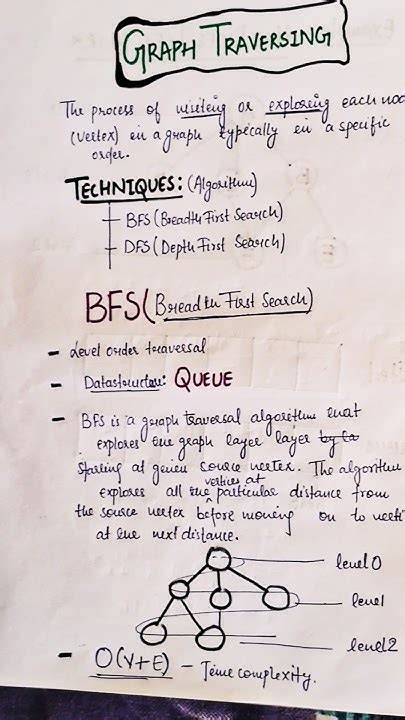 GRAPH TRAVERSING
The process of visiting or exploring each nod
(vertex) in a graph typically in a specific
order.
TECHNIQUES: (Algorithm)
BFS (Breadth First Search)
DFS (Depth First Search)
BFS (Breadth First Search)
- Level order traversal
- Datastructure: QUEUE
- BFS is a graph traversal algorithm that
explores the graph layer layer by la
starting at given source vertex. The algorithm
vertices at
explores all the particular distance from
the source vertex before moving on to verti
at the next distance.
level 0
level 1
level 2
- O(V+E) - Time complexity.